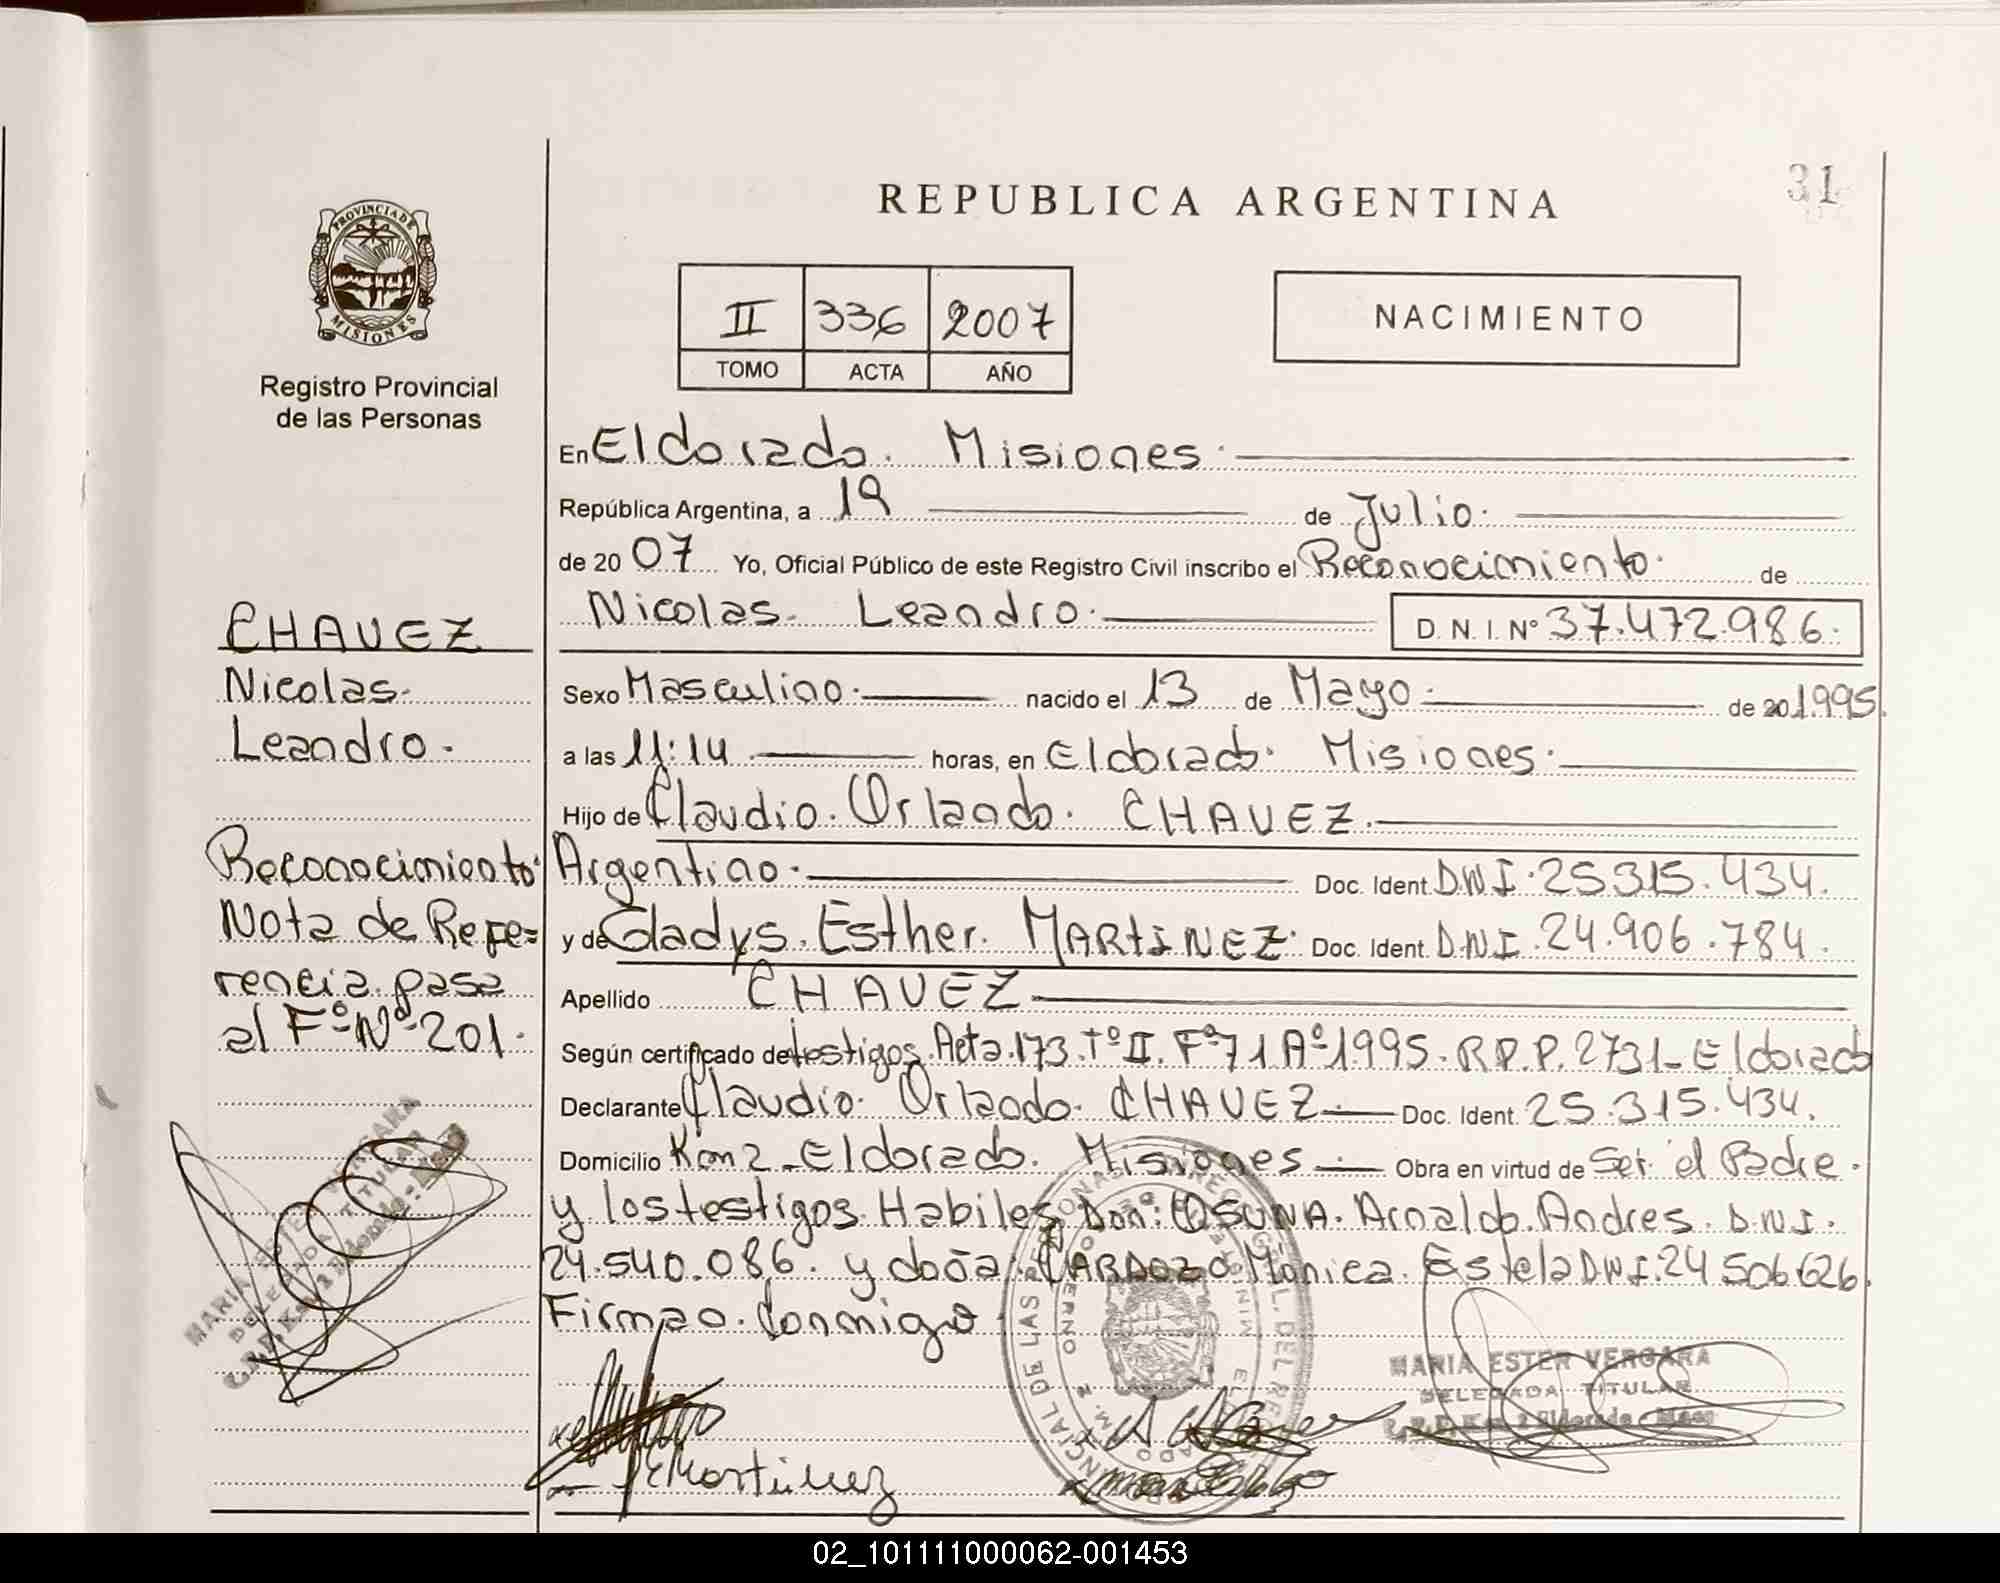 31
REPUBLICA ARGENTINA
PROVINCIA DE MISIONES
Registro Provincial
de las Personas
II 336 2007
TOMO ACTA AÑO
NACIMIENTO
CHAVEZ
Nicolas
Leandro.
Reconocimiento.
Nota de Refe=
rencia pasa
al Fº Nº 201.
MARIA ESTER VERGARA
DELEGADA TITULAR
En Eldorado. Misiones.
República Argentina, a 19 de Julio.
de 2007 Yo, Oficial Público de este Registro Civil inscribo el Reconocimiento. de
Nicolas. Leandro. D. N. I. Nº 37.472.986.
Sexo Masculino. nacido el 13 de Mayo. de 201995.
a las 11:14 horas, en Eldorado. Misiones.
Hijo de Claudio. Orlando. CHAVEZ.
Argentino. Doc. Ident. DNI. 25.315.434.
y de Gladys. Esther. MARTINEZ. Doc. Ident. DNI. 24.906.784.
Apellido CHAVEZ
Según certificado de testigos. Acta.173.Tº II. Fº 71 Aº 1995. R.P.P. 2731_ Eldorado
Declarante Claudio. Orlando. CHAVEZ. Doc. Ident. 25.315.434.
Domicilio Km 2_ Eldorado. Misiones Obra en virtud de Ser el Padre.
y los testigos Habiles, Don: OSUNA. Arnaldo. Andres. D.N.I.
24.540.086. y doña: CARDOZO Mónica. Estela DNI. 24 506 626.
Firman. Conmigo
MARIA ESTER VERGARA
DELEGADA TITULAR
R.P.P. Km. 2 Eldorado - Mnes
Martinez
02_101111000062-001453